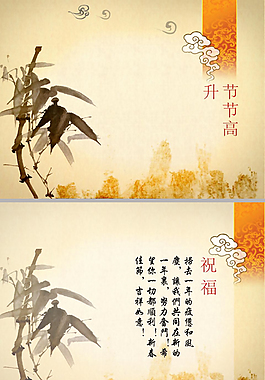 节节高
升
祝福
去一年的疲憊和風
塵，讓我們共同在新的
一年裏，努力奮鬥！希
望你一切都順利！新春
佳節，吉祥如意！